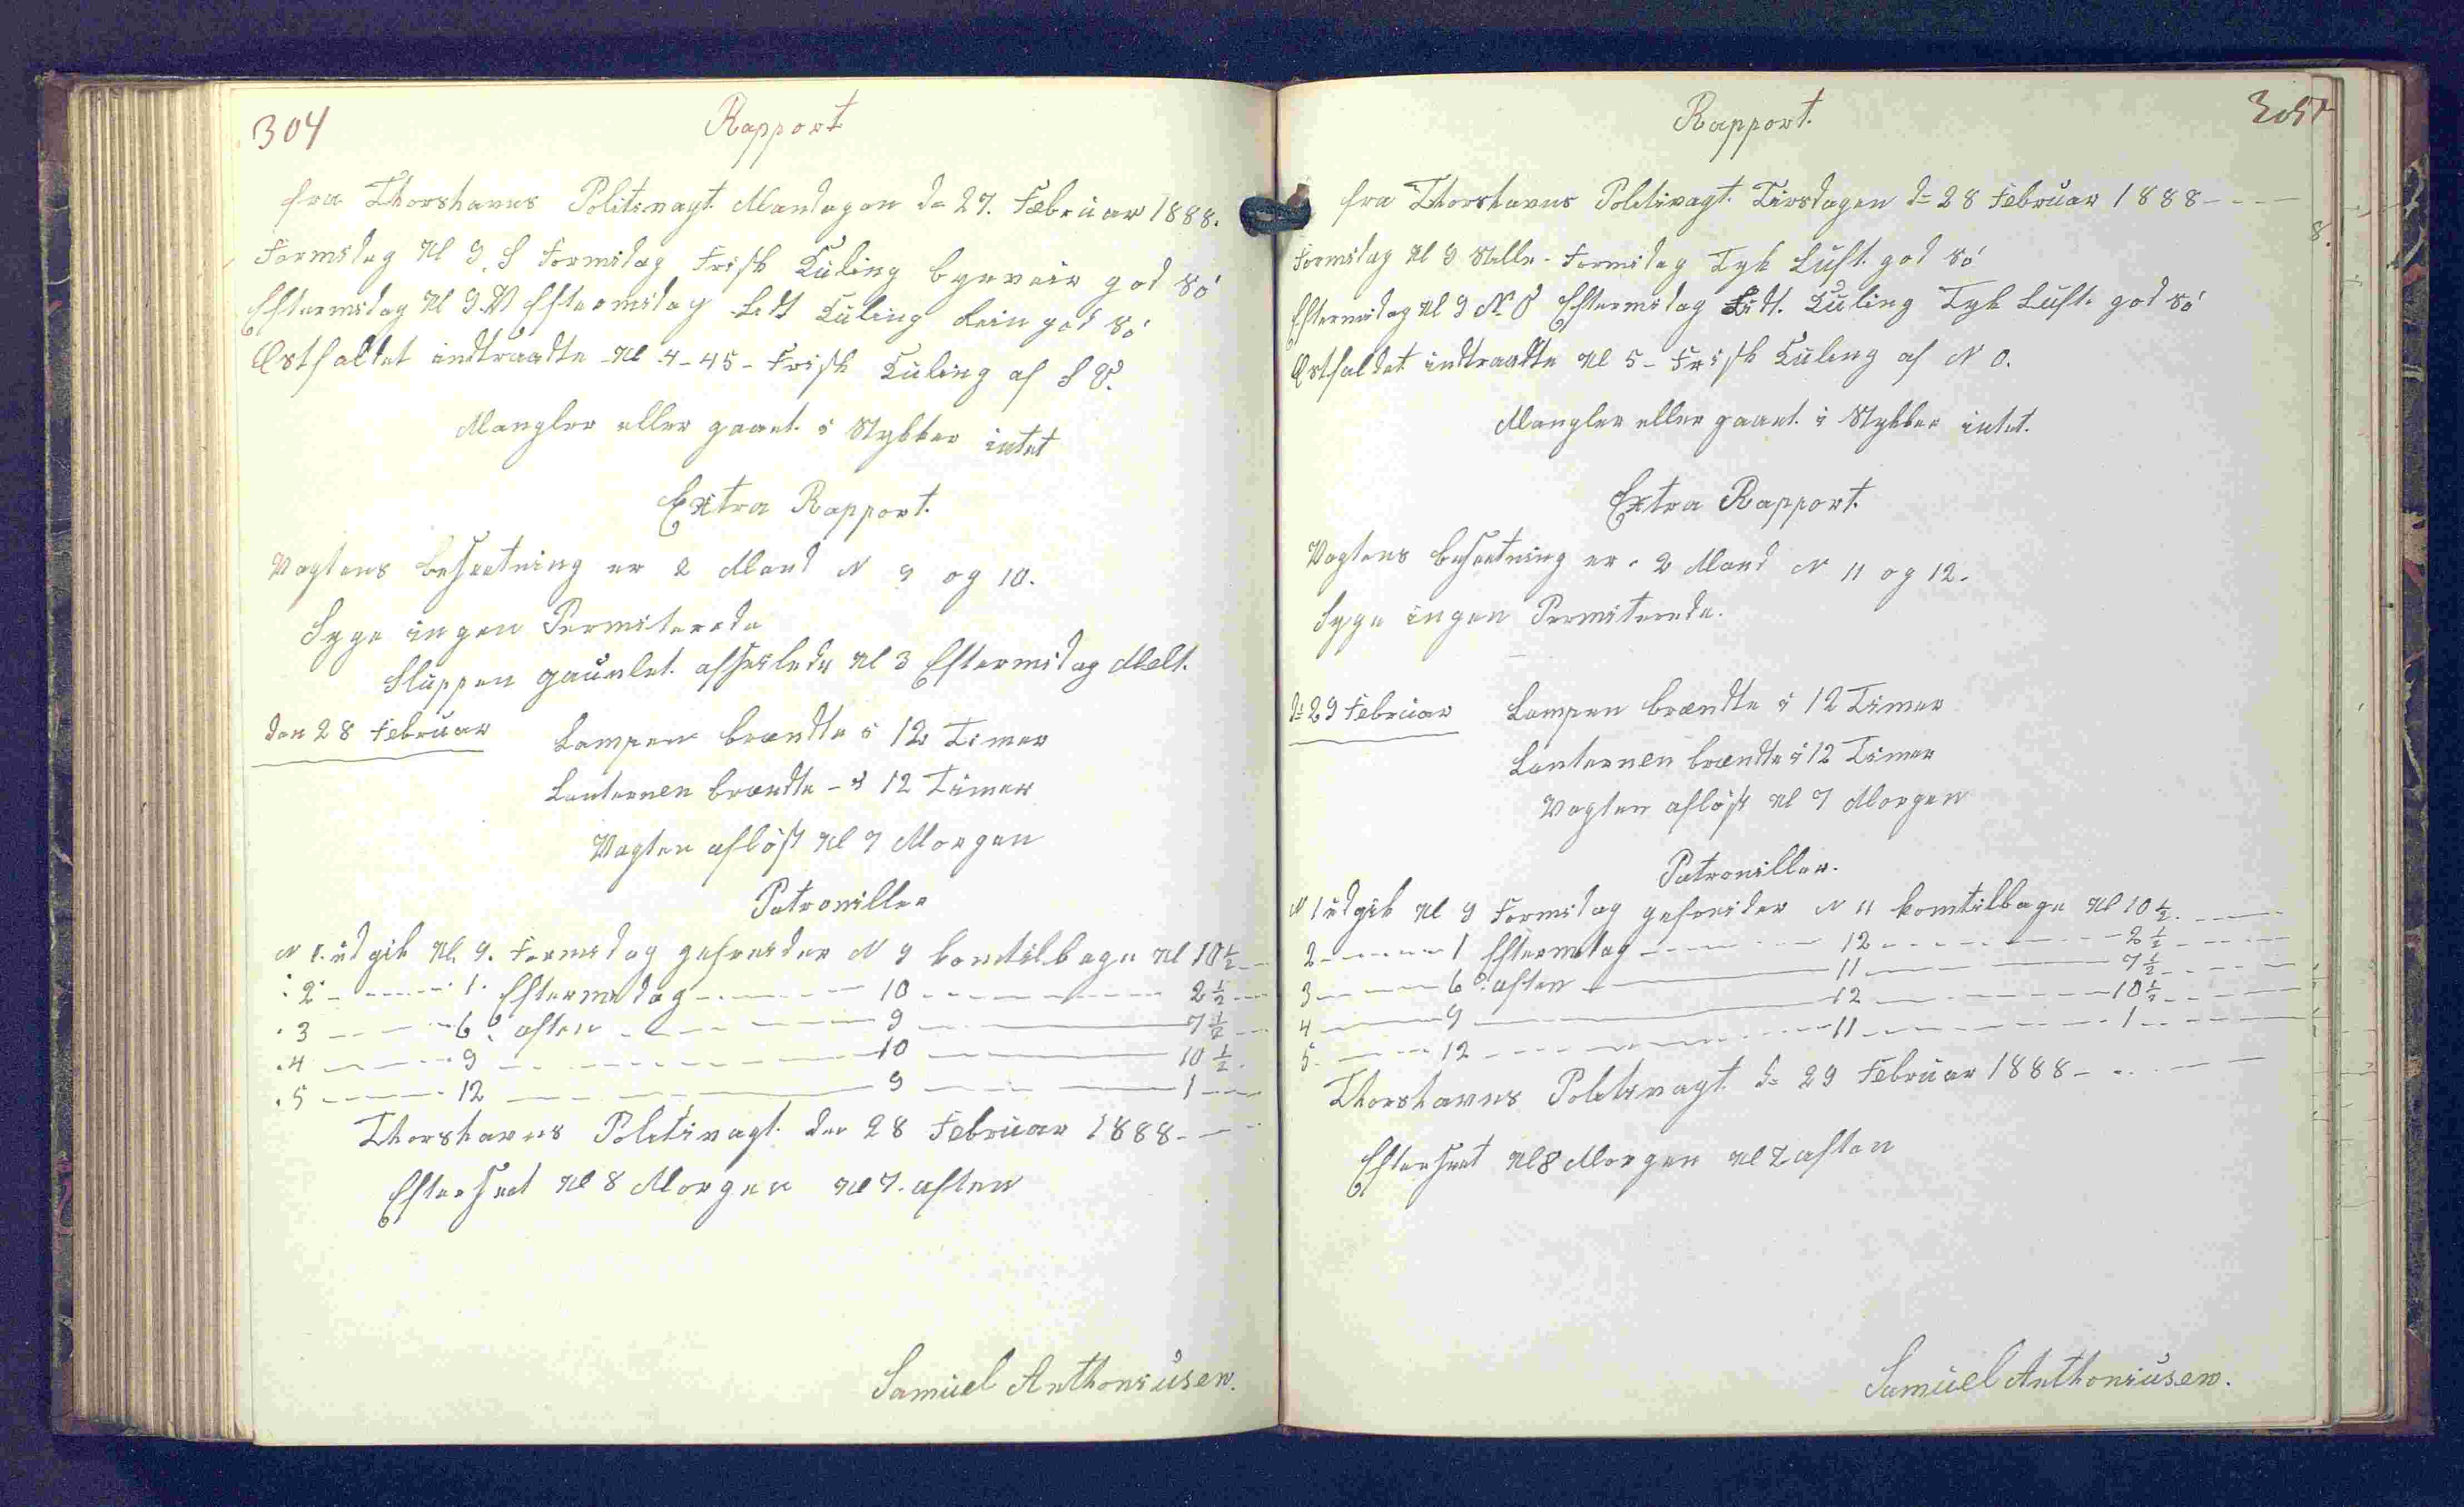 304
Rapport
fra Thorshavns Politivagt Mandagen d= 27. Februar 1888.
Formidag Kl 9. S Formidag Frisk Kuling bgeveir god Sö
Eftermidag Kl 9. V Eftermidag Lidt Kuling Rein god Sö
Østfaldet indtraadte Kl 4-45- Frisk Kuling af S V.
Mangler eller gaaet i Stykker intet
Extra Rapport.
Vagtens besætning er 2 Mand N 9 og 10.
Syge ingen Permiterede
Sluppen afseilede Kl 3 Eftermidag
den 28 Februar Lampen brændte i 12 Timer
Lanternen brændte - i 12 Timer
Vagten aflöst Kl 7 Morgen
Patrouiller
N 1. udgik Kl. 9. Formidag gefreider N 9 komtilbage Kl 10 1/2
2 1. Eftermidag 10 2 1/2
3 6 1/2 aften 9 7 1/2
4 9 10 10 1/2
5 12 9 1
Thorshavns Politivagt den 28 Februar 1888
Efterseet Kl 8 Morgen Kl 7. aften
Samuel Anthoniusen.
305
Rapport.
fra Thorshavns Politivagt. Tirsdagen d= 28 Februar 1888
Formidag Kl 9 Stille - Formidag Tyk Luft. god Sö
Eftermidag Kl 9 N O Eftermidag Lidt. Kuling Tyk Luft. god Sö
Østfaldet indtraadte Kl 5 - Frisk Kuling af N O.
Mangler eller gaaet. i Stykker intet.
Extra Rapport.
Vagtens besætning er. 2 Mand N 11 og 12.
Syge ingen Permiterede.
d= 29 Februar Lampen brændte i 12 Timer
Lanternen brændte i 12 Timer
Vagten aflöst Kl 7 Morgen
Patrouiller.
N 1 udgik Kl 9 Formidag gefreider N 11 komtilbage Kl 10 1/2
2 1 Eftermidag 12 2 1/2
3 6 aften 11 7 1/2
4 9 12 10 1/2
5 12 11 1
Thorshavns Politivagt d= 29 Februar 1888
Efterseet Kl 8 Morgen Kl 7 aften
Samuel Anthoniusen.